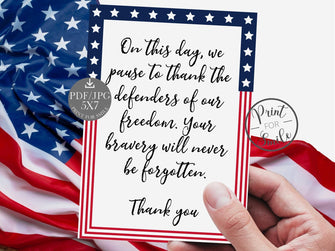 On this day, we
pause to thank the
defenders of our
freedom. Your
bravery will never
be forgotten.
Thank you
PDF/JPG
5X7
Print
FOR